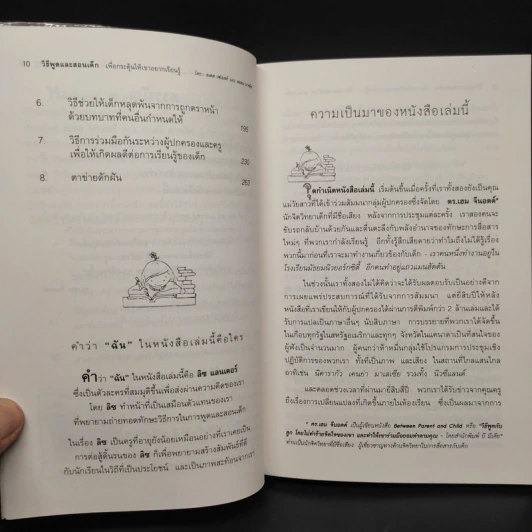 10 วิธีพูดและสอนเด็ก เพื่อกระตุ้นให้เขาอยากเรียนรู้
6. วิธีช่วยให้เด็กหลุดพ้นจากการถูกตราหน้า
ด้วยบทบาทที่คนอื่นกำหนดให้ 195
7. วิธีการร่วมมือกันระหว่างผู้ปกครองและครู
เพื่อให้เกิดผลดีต่อการเรียนรู้ของเด็ก 230
8. ตาข่ายดักฝัน 263
คำว่า "ฉัน" ในหนังสือเล่มนี้คือใคร
คำว่า "ฉัน" ในหนังสือเล่มนี้คือ ลิซ แลนเดอร์
ซึ่งเป็นตัวละครที่สมมุติขึ้นเพื่อส่งผ่านความคิดของเรา
โดย ลิซ ทำหน้าที่เป็นเสมือนตัวแทนของเรา
ที่พยายามถ่ายทอดทักษะวิธีการในการพูดและสอนเด็ก
ในเรื่อง ลิซ เป็นครูที่อายุยังน้อยเหมือนอย่างที่เราเคยเป็น
การต่อสู้ดิ้นรนของ ลิซ ก็เพื่อพยายามสร้างสัมพันธ์ที่ดี
กับนักเรียนในวิธีที่เป็นประโยชน์ และเป็นภาพสะท้อนจากเรา
ความเป็นมาของหนังสือเล่มนี้
จุดกำเนิดหนังสือเล่มนี้ เริ่มต้นขึ้นเมื่อครั้งที่เราทั้งสองยังเป็นคุณ
แม่วัยสาวที่ได้เข้าร่วมสัมมนากลุ่มผู้ปกครองซึ่งจัดโดย ดร.เฮม จีนอตต์*
นักจิตวิทยาเด็กที่มีชื่อเสียง หลังจากการประชุมแต่ละครั้ง เราสองคนจะ
ขับรถกลับบ้านด้วยกันและตื่นตะลึงกับพลังอำนาจของทักษะการสื่อสาร
ใหม่ๆ ที่พวกเรากำลังเรียนรู้ อีกทั้งรู้สึกเสียดายว่าทำไมถึงไม่ได้รู้เรื่อง
พวกนี้มาก่อนที่เราจะมาทำงานเกี่ยวข้องกับเด็ก เราคนหนึ่งทำงานอยู่ใน
โรงเรียนมัธยมนิวยอร์กซิตี้ อีกคนทำอยู่แถวแมนฮัตตัน
ในช่วงนั้นเราทั้งสองไม่ได้คิดว่าจะได้รับผลตอบรับเป็นอย่างดีจาก
การเผยแพร่ประสบการณ์ที่ได้รับจากการสัมมนา แต่ยี่สิบปีให้หลัง
หนังสือที่เราเขียนให้กับผู้ปกครองได้ผ่านการตีพิมพ์กว่า 2 ล้านเล่มและได้
รับการแปลเป็นภาษาอื่นๆ นับสิบภาษา การบรรยายที่พวกเราได้จัดขึ้น
ในเกือบทุกรัฐในสหรัฐอเมริกาและทุกๆ จังหวัดในแคนาดาเป็นที่สนใจของ
ผู้ฟังเป็นจำนวนมาก ผู้คนกว่าห้าหมื่นกลุ่มได้ใช้โปรแกรมการประชุมเชิง
ปฏิบัติการของพวกเรา ทั้งที่เป็นภาพ และเสียง ในสถานที่ไกลแสนไกล
อาทิเช่น นิคารากัว เคนย่า มาเลเซีย รวมทั้ง นิวซีแลนด์
และตลอดช่วงเวลาที่ผ่านมายี่สิบสี่ปี พวกเราได้รับข่าวจากคุณครู
ถึงเรื่องการเปลี่ยนแปลงที่เกิดขึ้นภายในห้องเรียน ซึ่งเป็นผลมาจากการ
* ดร.เฮม จีนอตต์ เป็นผู้เขียนหนังสือ Between Parent and Child หรือ "วิธีพูดกับ